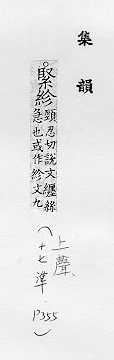 集韻
○緊紾頸忍切說文纏絲
急也或作紾文九
(上聲
十七準 P355)